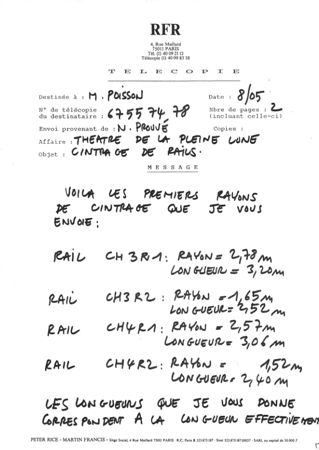 RFR
4, Rue Maillard
75011 PARIS
Tél. (1) 40 09 21 12
Télécopie (1) 40 09 83 58
TELECOPIE
Destinée à : M. POISSON Date : 8/05
N° de télécopie du destinataire : 67 55 74 78 Nbre de pages : 2
(incluant celle-ci)
Envoi provenant de : N. PROUVÉ Copies :
Affaire : THEATRE DE LA PLEINE LUNE
Objet : CINTRAGE DE RAILS.
MESSAGE
VOILA LES PREMIERS RAYONS
DE CINTRAGE QUE JE VOUS
ENVOIE :
RAIL CH3R1 : RAYON = 2,78 m
LONGUEUR = 3,20 m
RAIL CH3R2 : RAYON = 1,65 m
LONGUEUR = 2,52 m
RAIL CH4R1 : RAYON = 2,57 m
LONGUEUR = 3,06 m
RAIL CH4R2 : RAYON = 1,52 m
LONGUEUR = 2,40 m
LES LONGUEURS QUE JE VOUS DONNE
CORRESPONDENT À LA LONGUEUR EFFECTIVEMENT
PETER RICE - MARTIN FRANCIS - Siège Social, 4 Rue Maillard 75011 PARIS